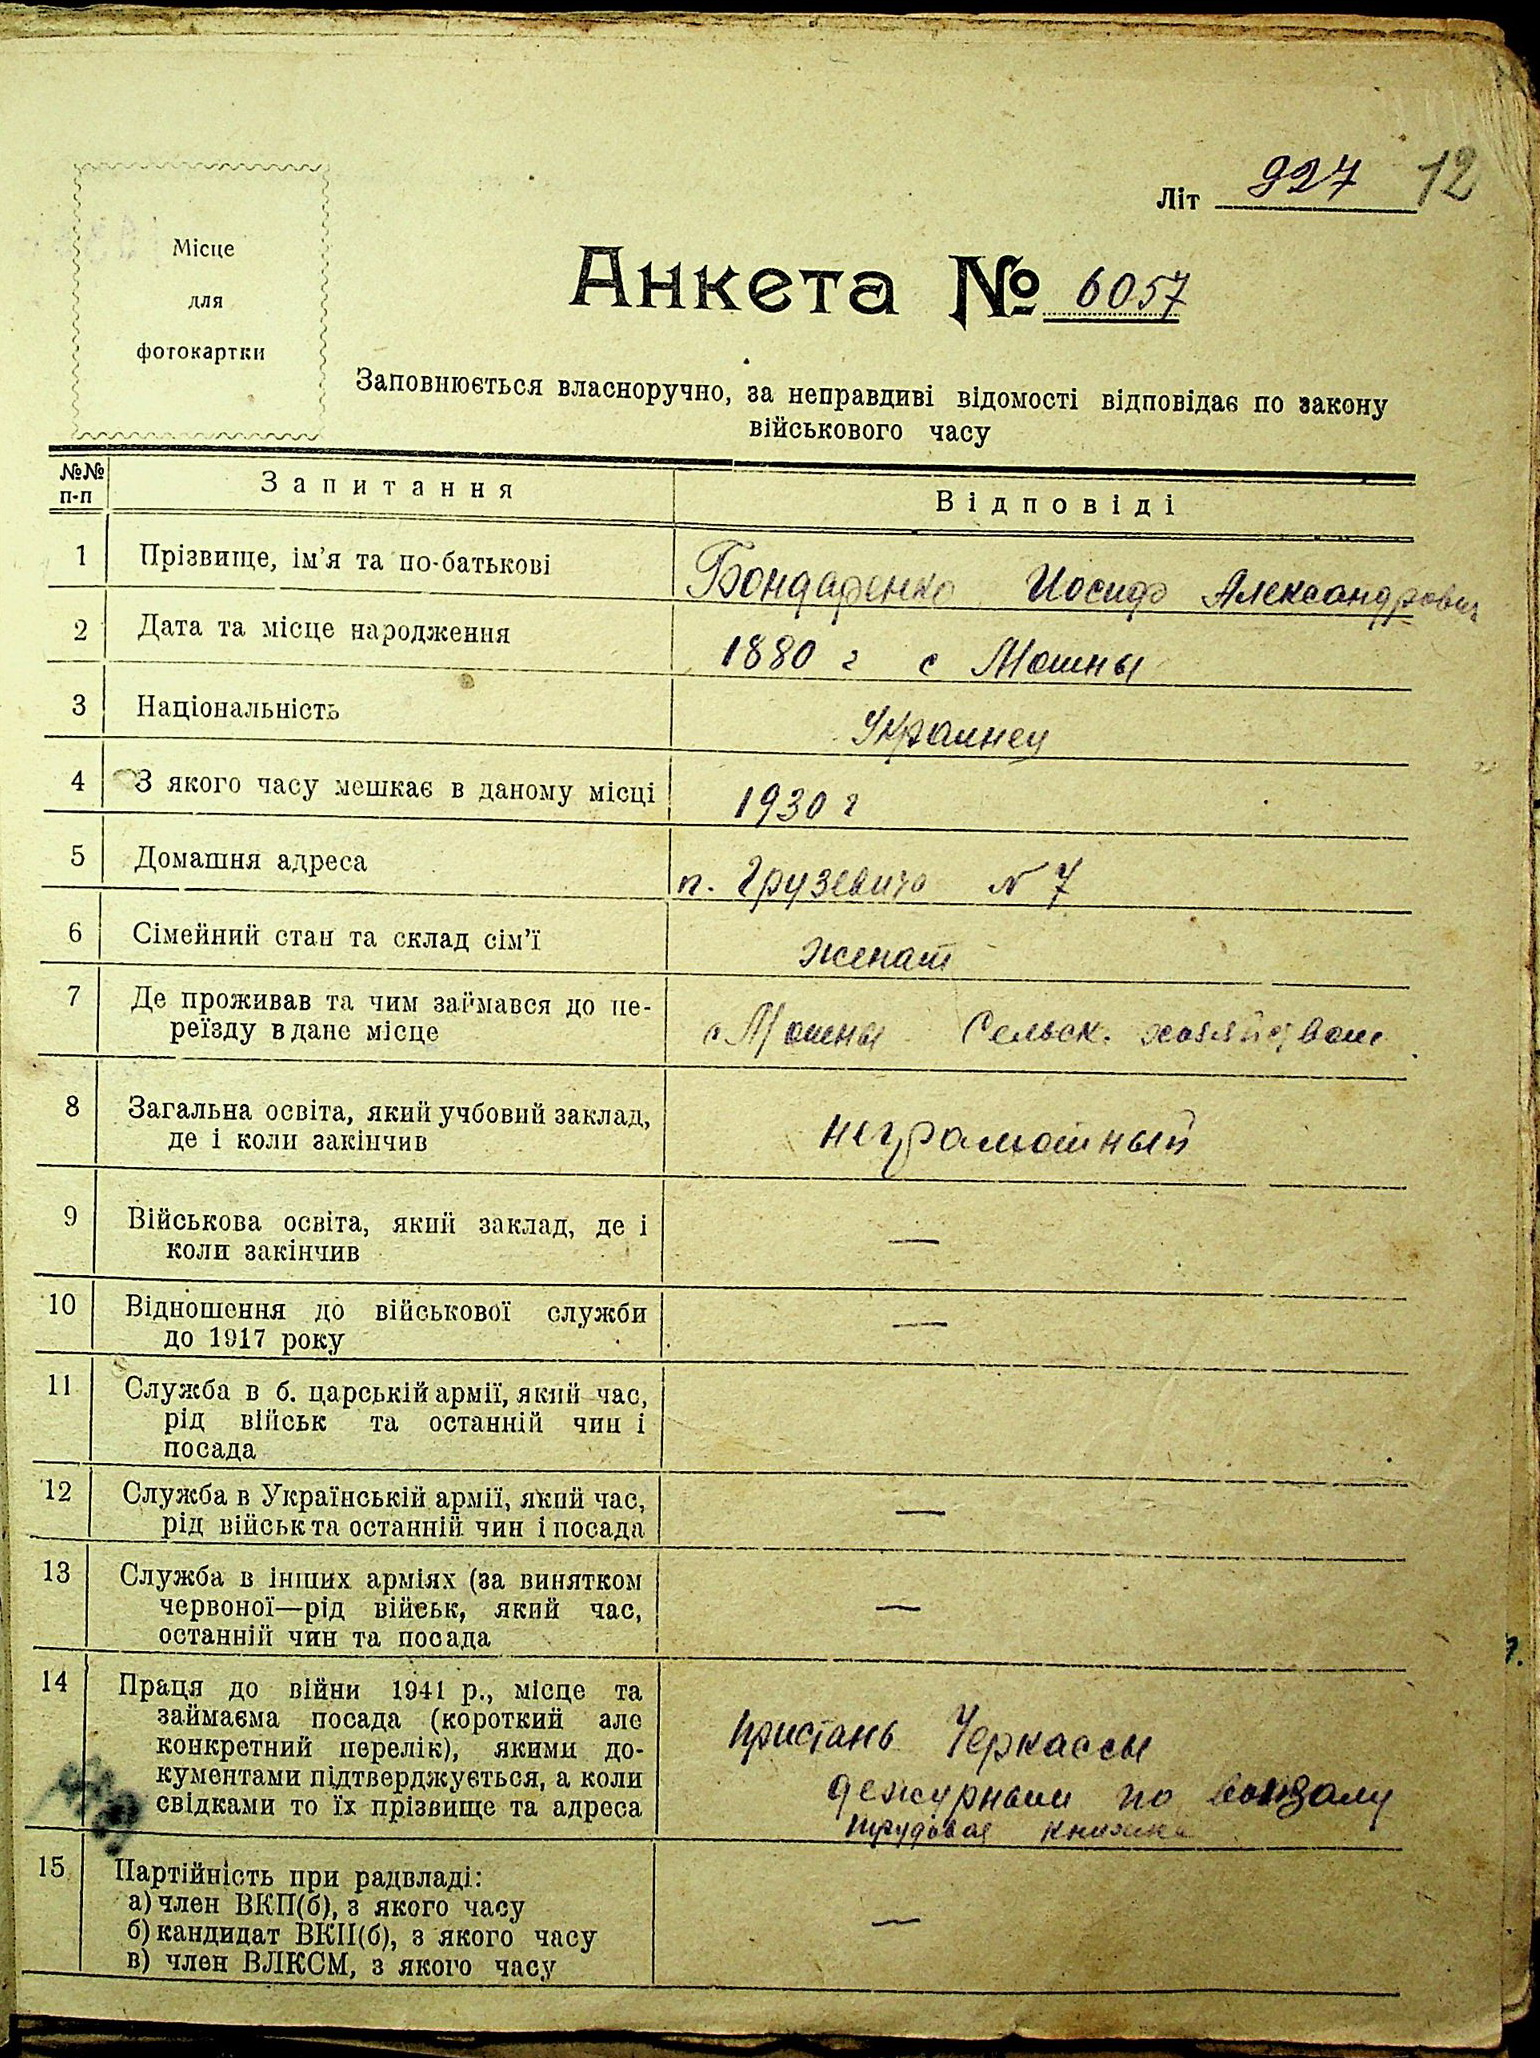 Літ 927 12
Місце
для
фотокартки
Анкета № 6057
Заповнюється власноручно, за неправдиві відомості відповідає по закону
військового часу
№№ п-п Запитання Відповіді
1 Прізвище, ім'я та по-батькові Бондаренко Иосиф Александрович
2 Дата та місце народження 1880 г с Мошны
3 Національність Украинец
4 З якого часу мешкає в даному місці 1930 г
5 Домашня адреса п. Грузевича N 7
6 Сімейний стан та склад сім'ї женат
7 Де проживав та чим займався до пе-
реїзду в дане місце с Мошны Сельск. хозяйством
8 Загальна освіта, який учбовий заклад,
де і коли закінчив неграмотный
9 Військова освіта, який заклад, де і
коли закінчив —
10 Відношення до військової служби
до 1917 року —
11 Служба в б. царській армії, який час,
рід військ та останній чин і
посада
12 Служба в Українській армії, який час,
рід військ та останній чин і посада —
13 Служба в інших арміях (за винятком
червоної—рід військ, який час,
останній чин та посада —
14 Праця до війни 1941 р., місце та
займаєма посада (короткий але
конкретний перелік), якими до-
кументами підтверджується, а коли
свідками то їх прізвище та адреса
пристань Черкассы
дежурным по вокзалу
трудовая книжка
15 Партійність при радвладі:
а) член ВКП(б), з якого часу
б) кандидат ВКП(б), з якого часу —
в) член ВЛКСМ, з якого часу